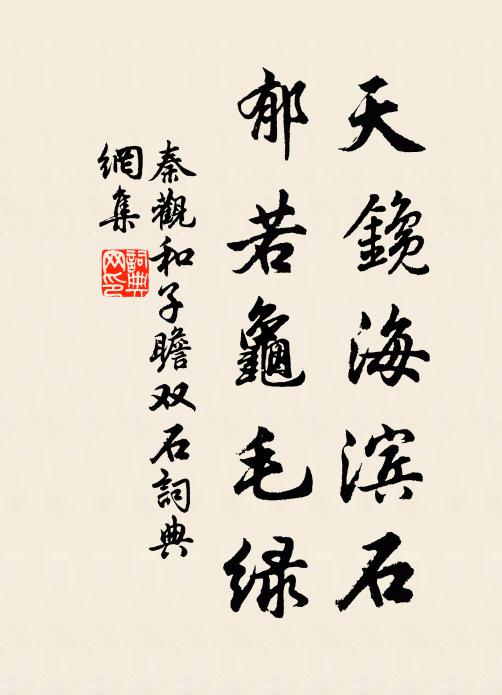 天鑱海滨石
郁若龜毛绿
秦觀和子瞻双石詞典
網集
詞典
网印